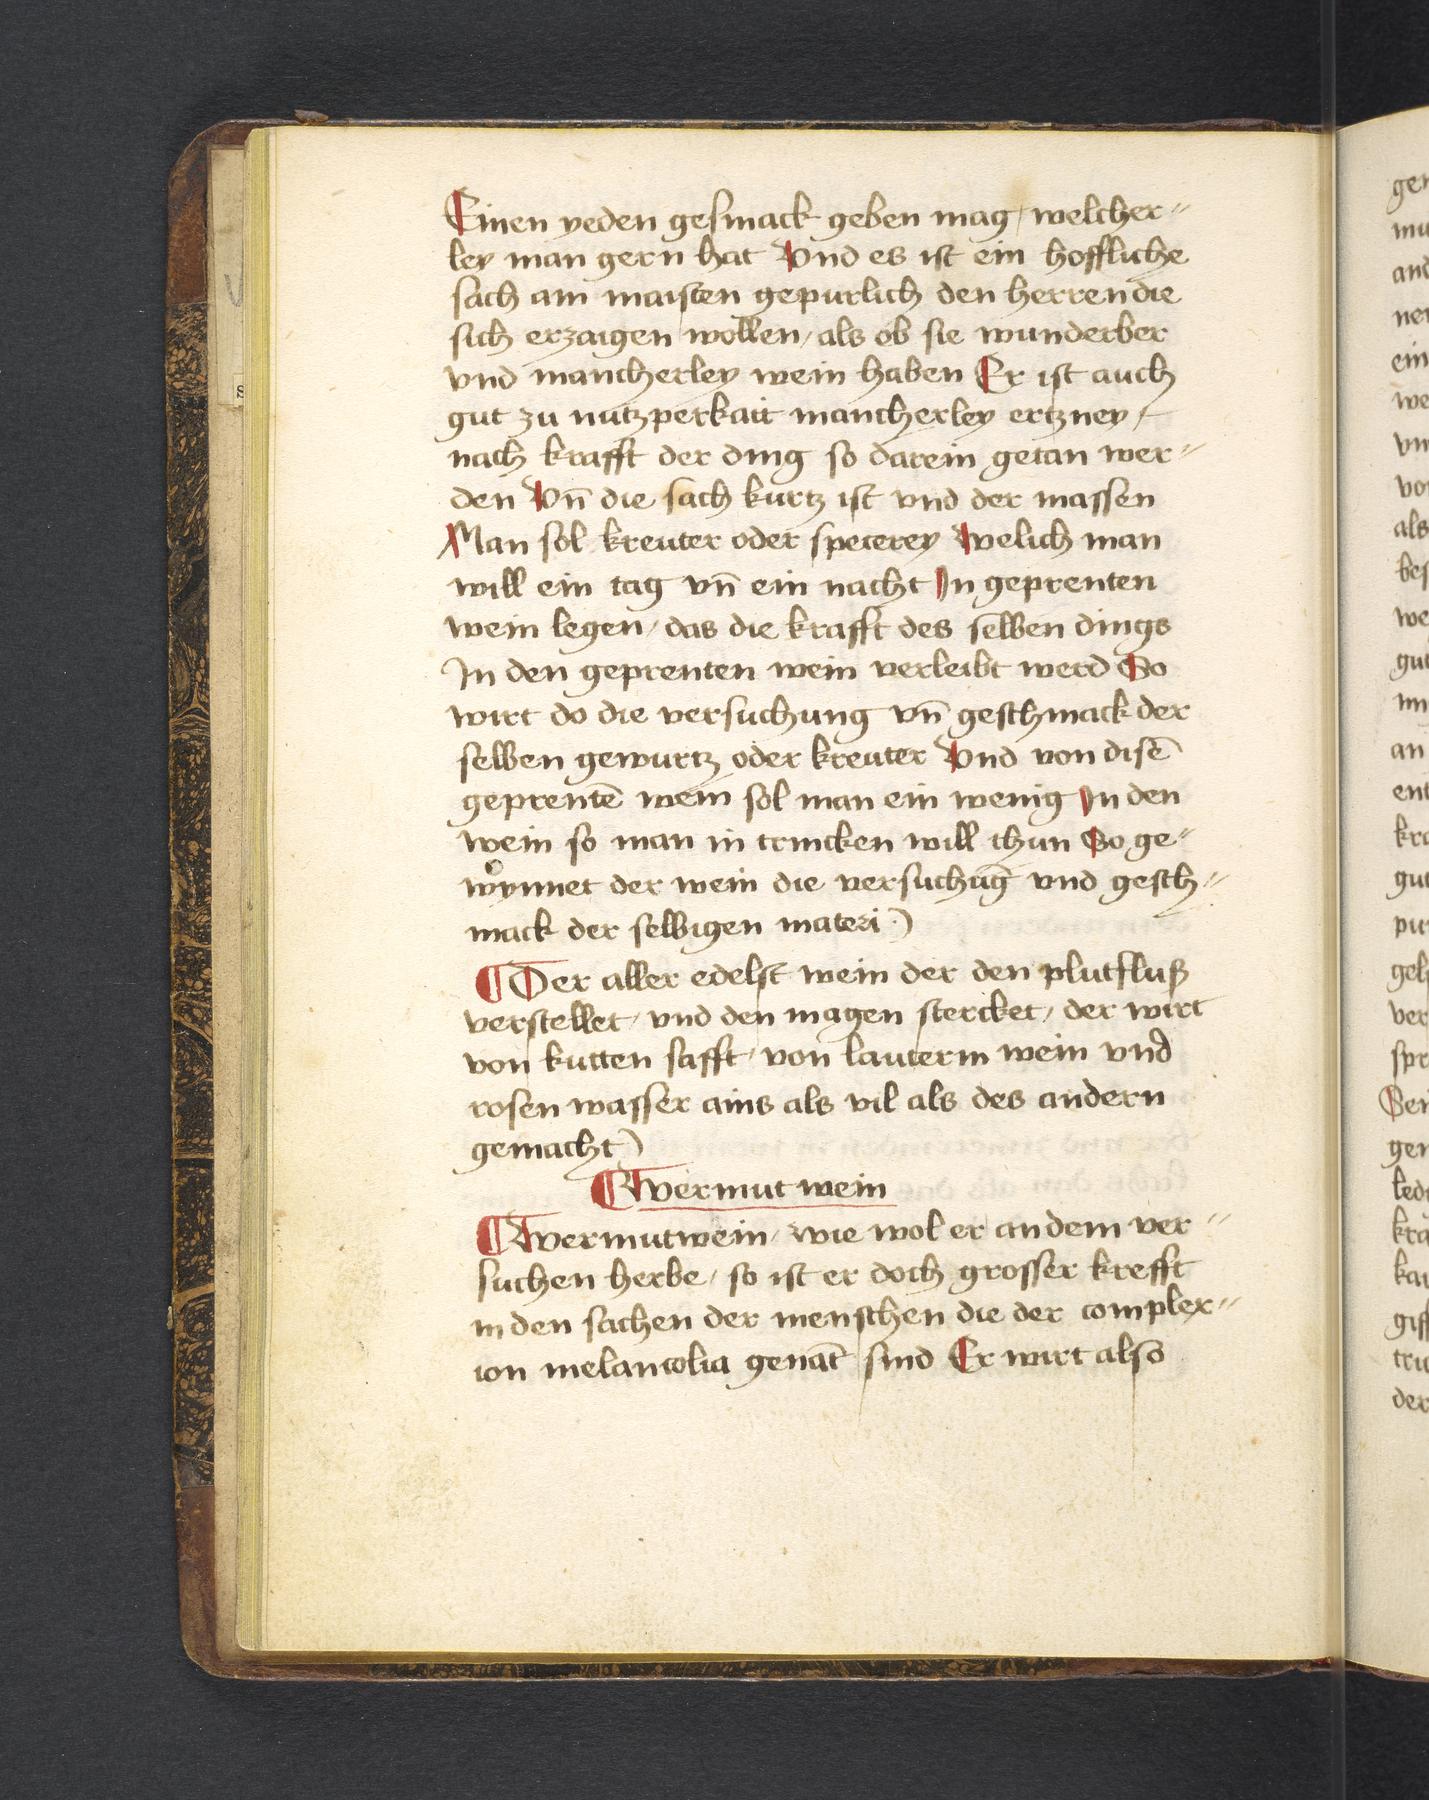 Einen yeden gesmack geben mag / welcher⸗
ley man gern hat Vnd es ist ein hoffliche
sach am maisten gepurlich den herren die
sich erzaigen wollen / als ob sie wunderber
vnd mancherley wein haben Er ist auch
gut zu nutzperkait mancherley ertzney /
nach krafft der ding so darein getan wer⸗
den Vn̄ die sach kurtz ist vnd der massen
Man sol kreuter oder specerey Welich man
will ein tag vn̄ ein nacht In geprenten
wein legen / das die krafft des selben dings
In den geprenten wein verleibt werd So
wirt do die versuchung vn̄ geschmack der
selben gewurtz oder kreuter Vnd von disē
geprentē wein sol man ein wenig In den
wein so man in trincken will thun So ge⸗
wynnet der wein die versuchūg vnd gesch⸗
mack der selbigen materi
¶ Der aller edelst wein der den plutfluß
verstellet / vnd den magen stercket / der wirt
von kutten safft / von lauterm wein vnd
rosen wasser ains als vil als des andern
gemacht
¶ Wermut wein
¶ Wermutwein / wie wol er an dem ver⸗
suchen herbe / so ist er doch grosser krefft
in den sachen der menschen die der complex⸗
ion melancolia genāt sind Er wirt also
ger
and
ein
we
vn
vo
als
bes
we
gut
an
ent
kra
gut
gel
ver
spr
Sei
ger
led
kra
gif
der